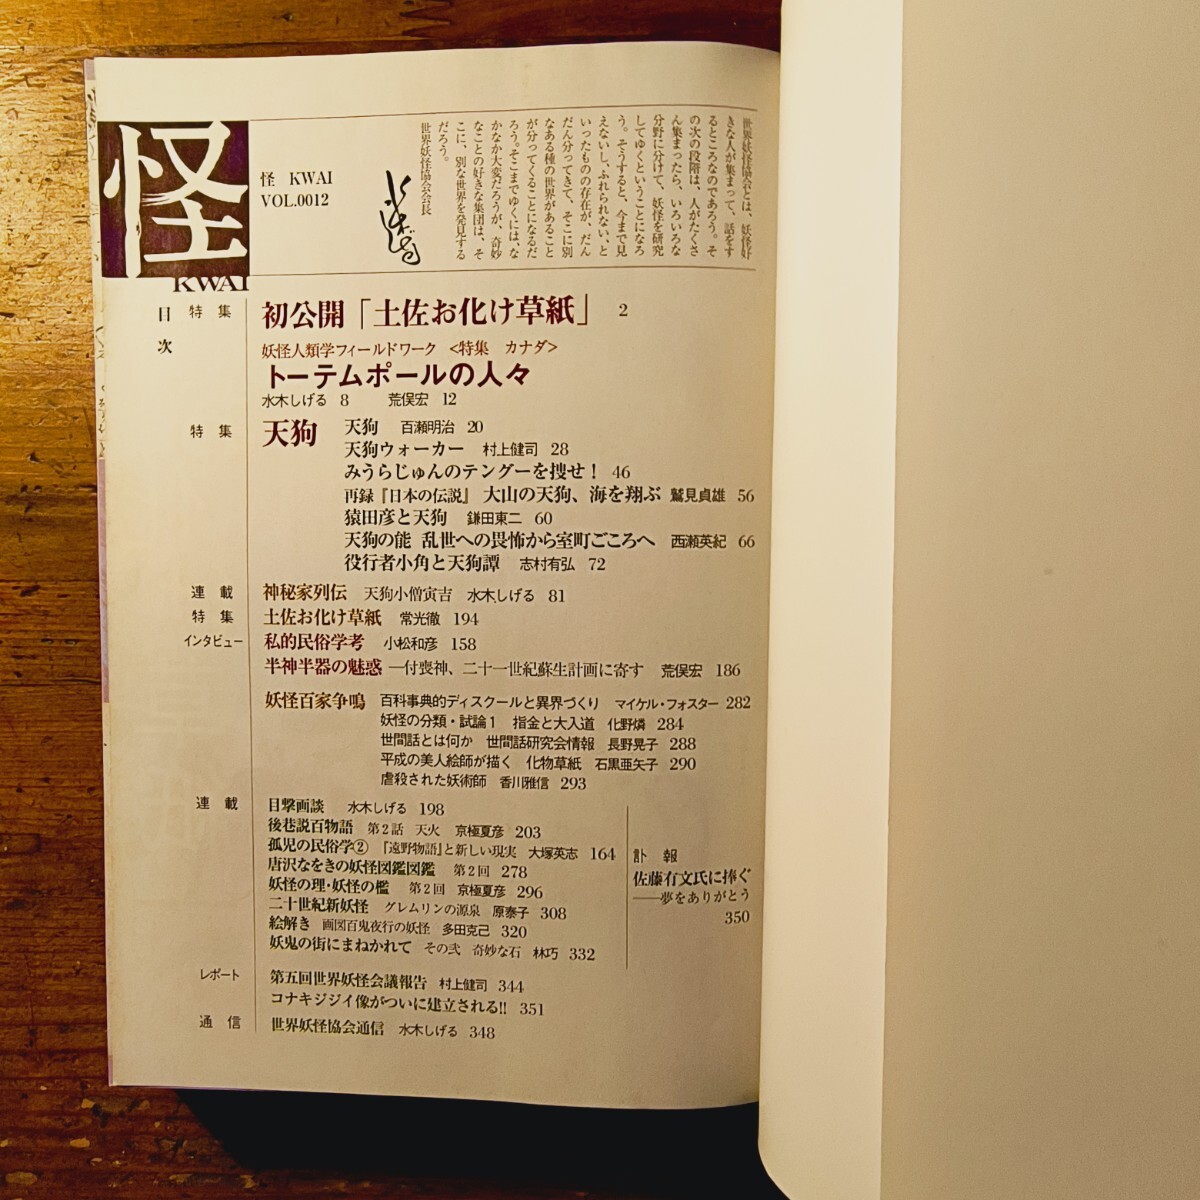 怪
KWAI
怪 KWAI
VOL.0012
世界妖怪協会とは、妖怪好
きな人が集まって、話をす
るところなのであろう。そ
の次の段階は、人がたくさ
ん集まったら、いろいろな
分野に分けて、妖怪を研究
してゆくということになろ
う。そうすると、今まで見
えないし、ふれられない、と
いったものの存在が、だん
だん分ってきて、そこに別
なある種の世界があること
が分ってくることになるだ
ろう。そこまでゆくには、な
かなか大変だろうが、奇妙
なことの好きな集団は、そ
こに、別な世界を発見する
だろう。
世界妖怪協会会長
目次
特集
初公開「土佐お化け草紙」 2
妖怪人類学フィールドワーク <特集 カナダ>
トーテムポールの人々
水木しげる 8 荒俣宏 12
特集
天狗
天狗 百瀬明治 20
天狗ウォーカー 村上健司 28
みうらじゅんのテングーを捜せ! 46
再録『日本の伝説』 大山の天狗、海を翔ぶ 鷲見貞雄 56
猿田彦と天狗 鎌田東二 60
天狗の能 乱世への畏怖から室町ごころへ 西瀬英紀 66
役行者小角と天狗譚 志村有弘 72
連載 神秘家列伝 天狗小僧寅吉 水木しげる 81
特集 土佐お化け草紙 常光徹 194
インタビュー 私的民俗学考 小松和彦 158
半神半器の魅惑 ―付喪神、二十一世紀蘇生計画に寄す 荒俣宏 186
妖怪百家争鳴 百科事典的ディスクールと異界づくり マイケル・フォスター 282
妖怪の分類・試論1 指金と大入道 化野燐 284
世間話とは何か 世間話研究会情報 長野晃子 288
平成の美人絵師が描く 化物草紙 石黒亜矢子 290
虐殺された妖術師 香川雅信 293
連載 目撃画談 水木しげる 198
後巷説百物語 第2話 天火 京極夏彦 203
孤児の民俗学② 『遠野物語』と新しい現実 大塚英志 164
唐沢なをきの妖怪図鑑図鑑 第2回 278
妖怪の理・妖怪の檻 第2回 京極夏彦 296
二十世紀新妖怪 グレムリンの源泉 原泰子 308
絵解き 画図百鬼夜行の妖怪 多田克己 320
妖鬼の街にまねかれて その弐 奇妙な石 林巧 332
訃報
佐藤有文氏に捧ぐ
――夢をありがとう
350
レポート 第五回世界妖怪会議報告 村上健司 344
コナキジジイ像がついに建立される!! 351
通信 世界妖怪協会通信 水木しげる 348